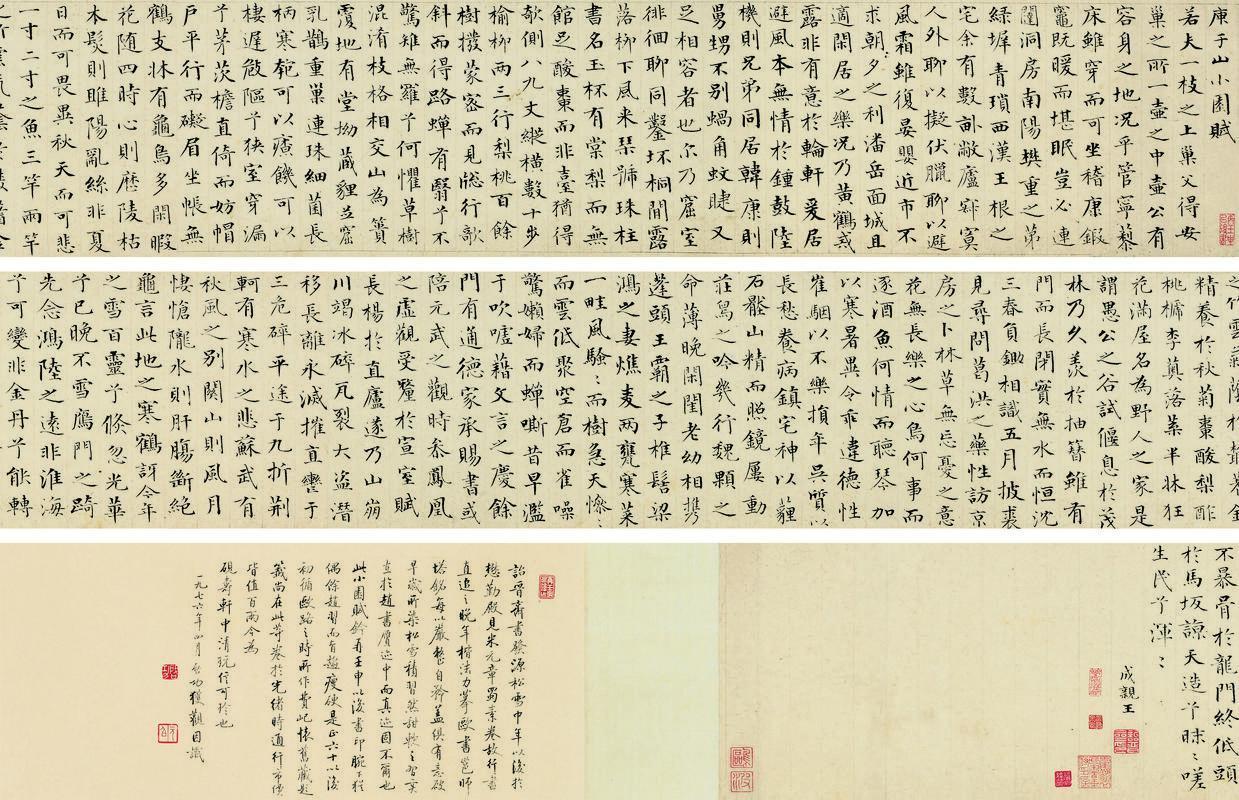 庾子山小園賦
若夫一枝之上巢父得安
巢之所一壺之中壺公有
容身之地況乎管寧藜
床雖穿而可坐嵇康鍛
竈既暖而堪眠豈必連
闥洞房南陽樊重之第
綠墀青瑣西漢王根之
宅余有數畝敝廬寂寞
人外聊以擬伏臘聊以避
風霜雖復晏嬰近市不
求朝夕之利潘岳面城且
適閑居之樂況乃黃鶴戒
露非有意於輪軒爰居
避風本無情於鍾鼓陸
機則兄弟同居韓康則
舅甥不別蝸角蚊睫又
足相容者也尔乃窟室
徘徊聊同鑿坏桐間露
落柳下風來琴號珠柱
書名玉杯有棠梨而無
館足酸棗而非臺猶得
欹側八九丈縱橫數十步
榆柳兩三行梨桃百餘
樹撥蒙密而見牕行欹
斜而得路蟬有翳兮不
驚雉無羅兮何懼草樹
混淆枝格相交山為簣
覆地有堂坳藏貍並窟
乳鵲重巢連珠細菌長
柄寒匏可以療饑可以
棲遲敧嶇兮狹室穿漏
兮茅茨檐直倚而妨帽
戶平行而礙眉坐帳無
鶴支牀有龜鳥多閑暇
花隨四時心則歷陵枯
木髮則睢陽亂絲非夏
日而可畏異秋天而可悲
一寸二寸之魚三竿兩竿
之竹雲氣蔭於叢蓍金
精養於秋菊棗酸梨酢
桃榹李薁落葉半牀狂
花滿屋名為野人之家是
謂愚公之谷試偃息於茂
林乃久羨於抽簪雖有
門而長閉實無水而恒沈
三春負鋤相識五月披裘
見尋問葛洪之藥性訪京
房之卜林草無忘憂之意
花無長樂之心鳥何事而
逐酒魚何情而聽琴加
以寒暑異令乖違德性
崔駰以不樂損年吳質以
長愁養病鎮宅神以薶
石厭山精而照鏡屢動
莊舄之吟幾行魏顆之
命薄晚閑閨老幼相攜
蓬頭王霸之子椎髻梁
鴻之妻燋麦兩甕寒菜
一畦風騷〻而樹急天慘〻
而雲低聚空倉而雀噪
驚嬾婦而蟬嘶昔早濫
于吹噓藉文言之慶餘
門有通德家承賜書或
陪元武之觀時參鳳凰
之虛觀受釐於宣室賦
長楊於直廬遂乃山崩
川竭冰碎瓦裂大盜潛
移長離永滅摧直轡于
三危碎平途于九折荆
軻有寒水之悲蘇武有
秋風之別關山則風月
悽愴隴水則肝腸斷絕
龜言此地之寒鶴訝今年
之雪百靈兮倏忽光華
兮已晚不雪鴈門之踦
先念鴻陸之遠非淮海
兮可變非金丹兮能轉
不暴骨於龍門終低頭
於馬坂諒天造兮昧〻嗟
生民兮渾〻
成親王
詒晉齋書發源松雪中年以後於
懋勤殿見米元章蜀素卷故行書
直追之晚年楷法力摹歐書邕師
塔銘每以嚴整自矜蓋俱有意改
早歲所染松雪積習然甜軟之習實
查於趙書贋迹中而真迹固不爾也
此小園賦鈐再壬申以後書印腕下稍
偶餘趙習而有趙瘦使是正六十以後
初循歐路之時所作費屺懷舊藏題
籤尚在此等卷於光緒時通行市價
皆值百兩今為
硯壽軒中清玩信可珍也
一九七六年四月啟功獲觀因識